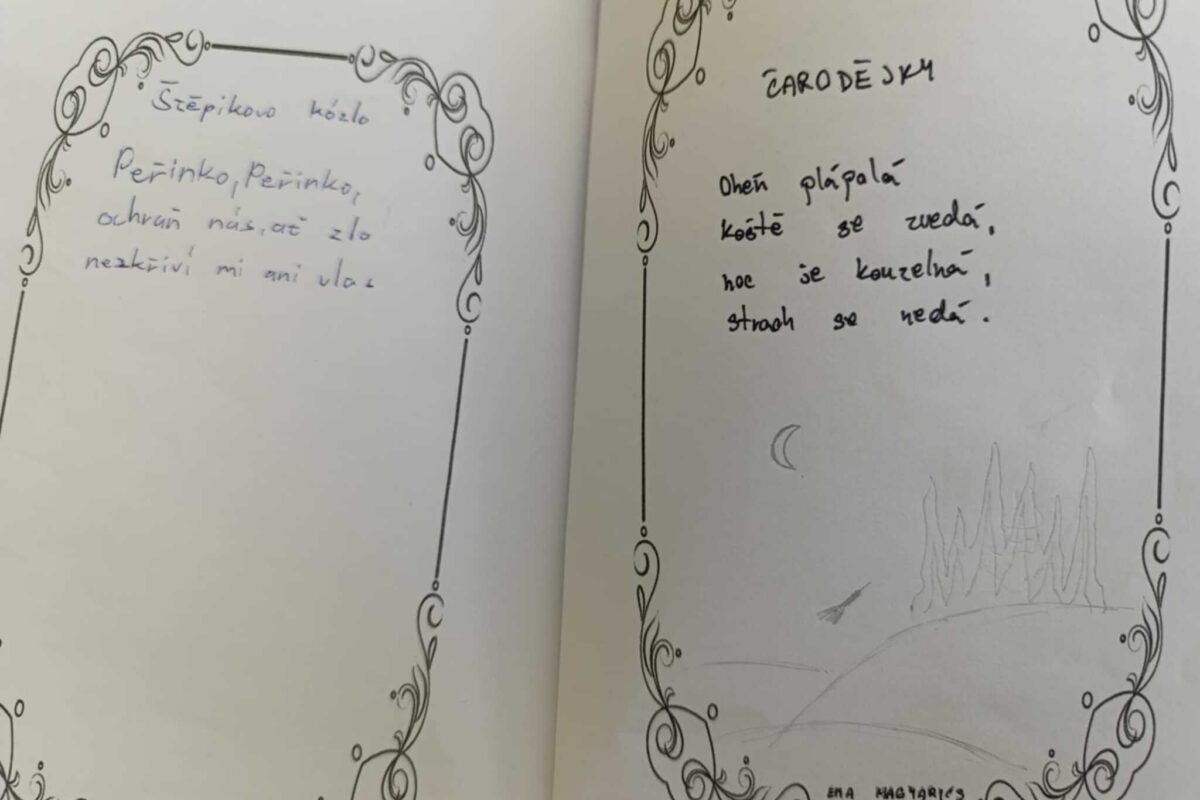 Štěpikovo kózlo
Peřinko, Peřinko,
ochraň nás, ať zlo
nezkřiví mi ani vlas
ČARODĚJKY
Oheň plápalá
koště se zvedá,
noc je kouzelná,
strach se nedá.
EMA MAGYARICS